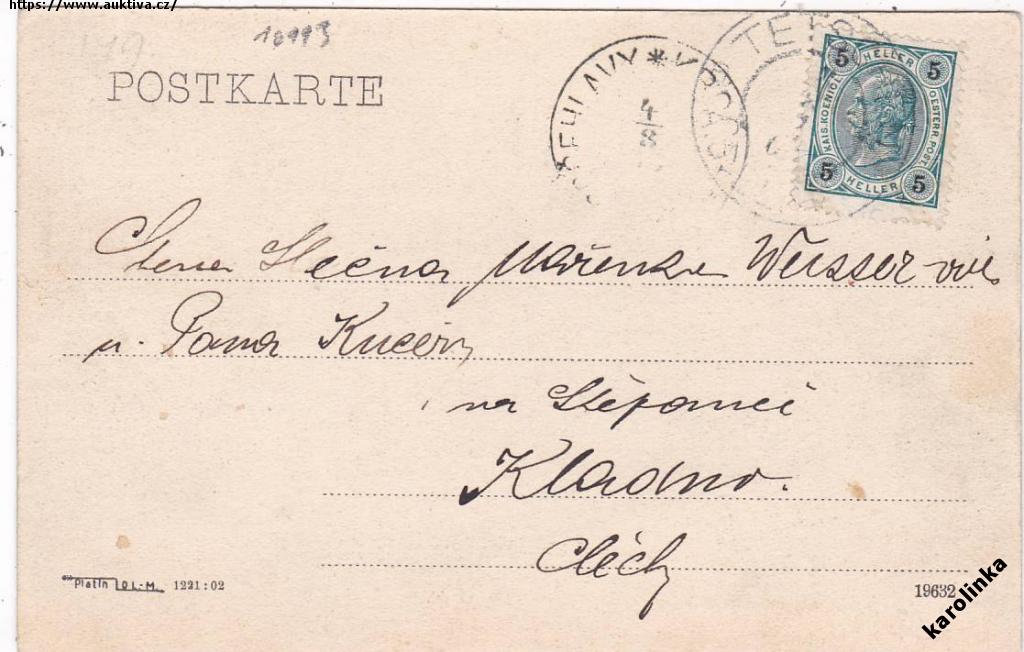 https://www.auktiva.cz/
10993
POSTKARTE
4
8
5 HELLER 5
KAIS. KOENIGL. OESTERR. POST.
5 HELLER 5
Ctená Slečna Mařenka Weisser-ová
u. Pana Kučery
na Štěpance
Kladno.
Čechy
Platin L-M. 1221:02
19632
karolinka